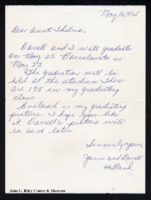 May 16, 1965
Dear Aunt Thelma,
Darrell and I will graduate
on May 25. Baccalaureate is
May 23.
The graduation will be
held at the stadium. There
are 195 in my graduating
class.
Enclosed is my graduating
picture. I hope you like
it. Darrell's picture will
be sent later.
Sincerely yours,
Janis and Darrell
Holland
John G. Riley Center & Museum